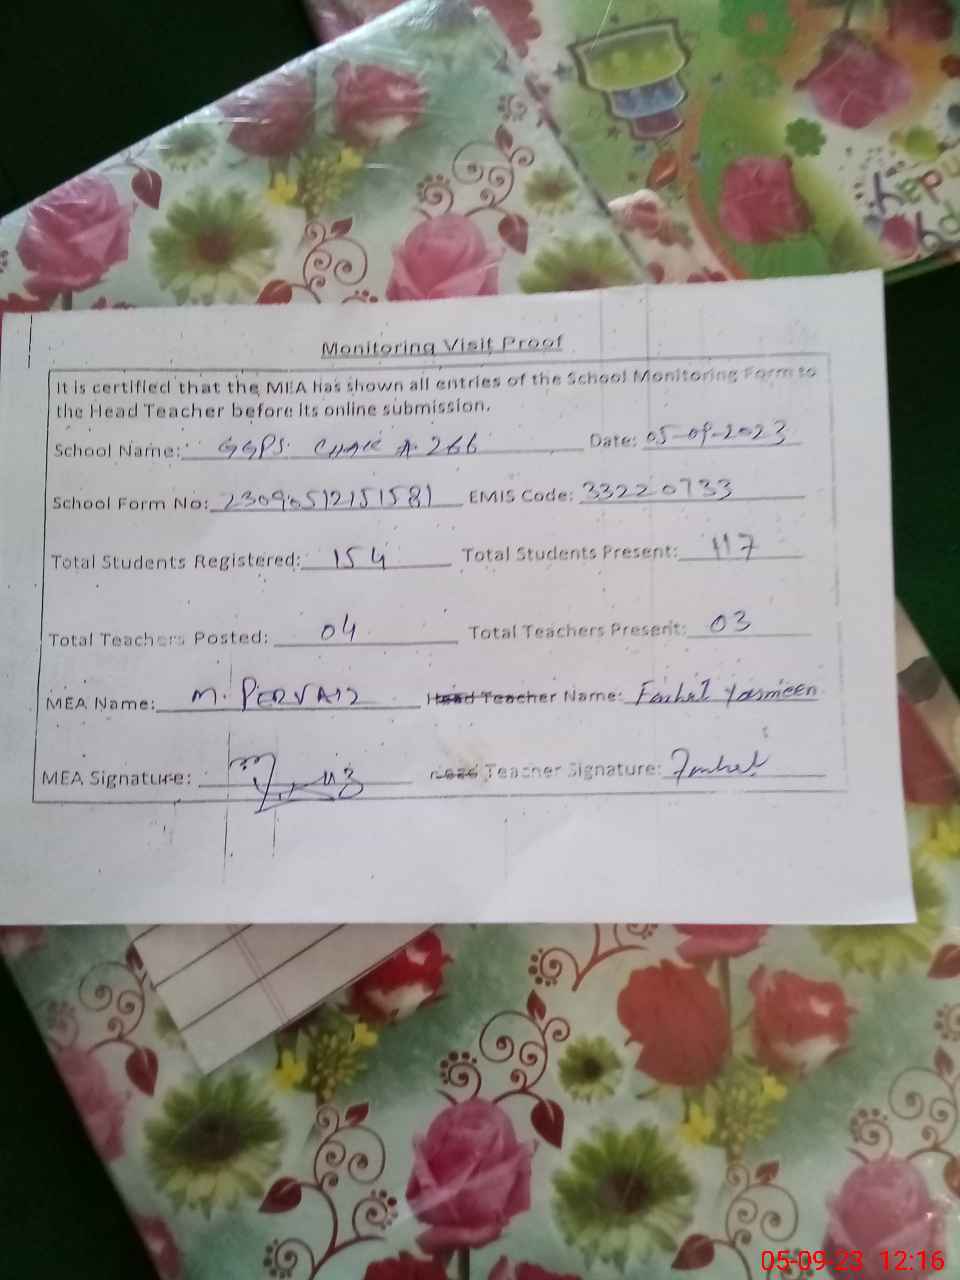 Monitoring Visit Proof
It is certified that the MEA has shown all entries of the School Monitoring Form to
the Head Teacher before its online submission.
School Name: GGPS CHAK # 266 Date: 05-09-2023
School Form No: 23090512151581 EMIS Code: 33220733
Total Students Registered: 154 Total Students Present: 117
Total Teachers Posted: 04 Total Teachers Present: 03
MEA Name: M. PERVAIZ Head Teacher Name: Yasmeen
MEA Signature: Head Teacher Signature:
05-09-23 12:16